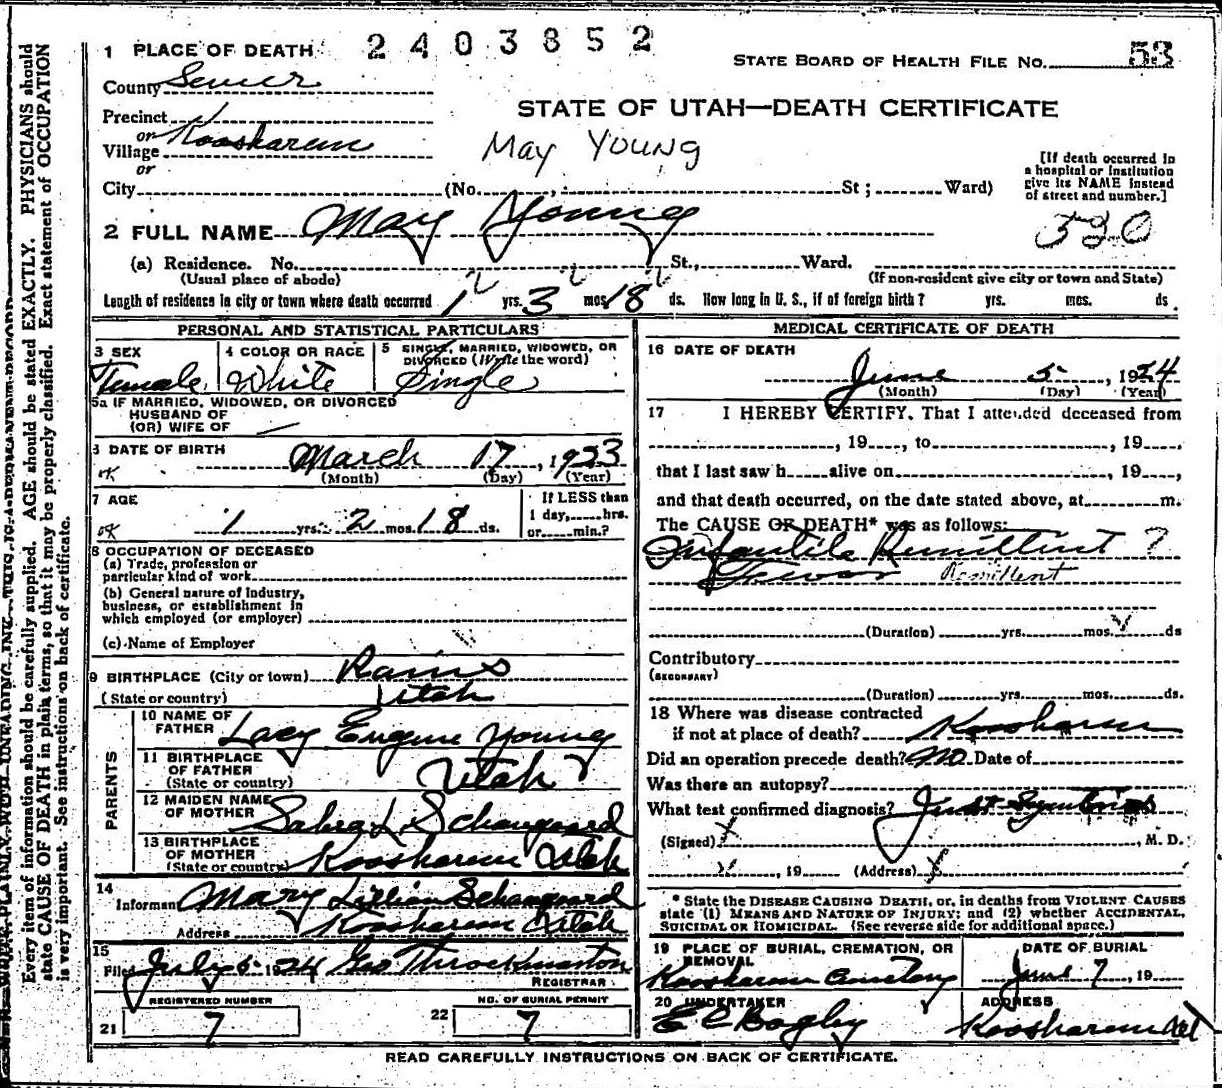 1 PLACE OF DEATH 2403852
STATE BOARD OF HEALTH FILE NO. 53
County Sevier
STATE OF UTAH—DEATH CERTIFICATE
Precinct
or
Village Koosharem
May Young
or
City (No. , St; Ward)
[If death occurred in
a hospital or institution
give its NAME instead
of street and number.]
2 FULL NAME May Young
530
(a) Residence. No. St., Ward.
(Usual place of abode) (If non-resident give city or town and State)
Length of residence in city or town where death occurred 1 yrs. 3 mos 18 ds. How long in U. S., if of foreign birth? yrs. mos. ds.
PERSONAL AND STATISTICAL PARTICULARS
3 SEX
Female
4 COLOR OR RACE
White
5 SINGLE, MARRIED, WIDOWED, OR
DIVORCED (Write the word)
Single
5a IF MARRIED, WIDOWED, OR DIVORCED
HUSBAND OF
(OR) WIFE OF
6 DATE OF BIRTH
March 17, 1923
(Month) (Day) (Year)
7 AGE
1 yrs. 2 mos. 18 ds.
If LESS than
1 day, hrs.
or min.?
8 OCCUPATION OF DECEASED
(a) Trade, profession or
particular kind of work
(b) General nature of industry,
business, or establishment in
which employed (or employer)
(c) Name of Employer
9 BIRTHPLACE (City or town) Rains
(State or country) Utah
PARENTS
10 NAME OF
FATHER Lacy Eugene Young
11 BIRTHPLACE
OF FATHER
(State or country) Utah
12 MAIDEN NAME
OF MOTHER Sabra L. Schaugaard
13 BIRTHPLACE
OF MOTHER
(State or country) Koosharem Utah
14
Informant Mary Lillian Schaugaard
Address Koosharem Utah
15
Filed July 5 1924 Geo Throckmorton
REGISTRAR
REGISTERED NUMBER
21 7
NO. OF BURIAL PERMIT
22 7
MEDICAL CERTIFICATE OF DEATH
16 DATE OF DEATH
June 5, 1924
(Month) (Day) (Year)
17 I HEREBY CERTIFY, That I attended deceased from
, 19 , to , 19
that I last saw h alive on , 19
and that death occurred, on the date stated above, at m.
The CAUSE OF DEATH* was as follows:
Infantile Remittent ?
Fever Remittent
(Duration) yrs. mos. ds
Contributory
(SECONDARY)
(Duration) yrs. mos. ds.
18 Where was disease contracted
if not at place of death? Koosharem
Did an operation precede death? No Date of
Was there an autopsy?
What test confirmed diagnosis? Just Symtoms
(Signed) X , M. D.
, 19 (Address) X
* State the DISEASE CAUSING DEATH, or, in deaths from VIOLENT CAUSES
state (1) MEANS AND NATURE OF INJURY; and (2) whether ACCIDENTAL,
SUICIDAL OR HOMICIDAL. (See reverse side for additional space.)
19 PLACE OF BURIAL, CREMATION, OR
REMOVAL
Koosharem Cemetery
DATE OF BURIAL
June 7, 19
20 UNDERTAKER
E C Bagley
ADDRESS
Koosharem Ut
READ CAREFULLY INSTRUCTIONS ON BACK OF CERTIFICATE.
Every item of information should be carefully supplied. AGE should be stated EXACTLY. PHYSICIANS should
state CAUSE OF DEATH in plain terms, so that it may be properly classified. Exact statement of OCCUPATION
is very important. See instructions on back of certificate.